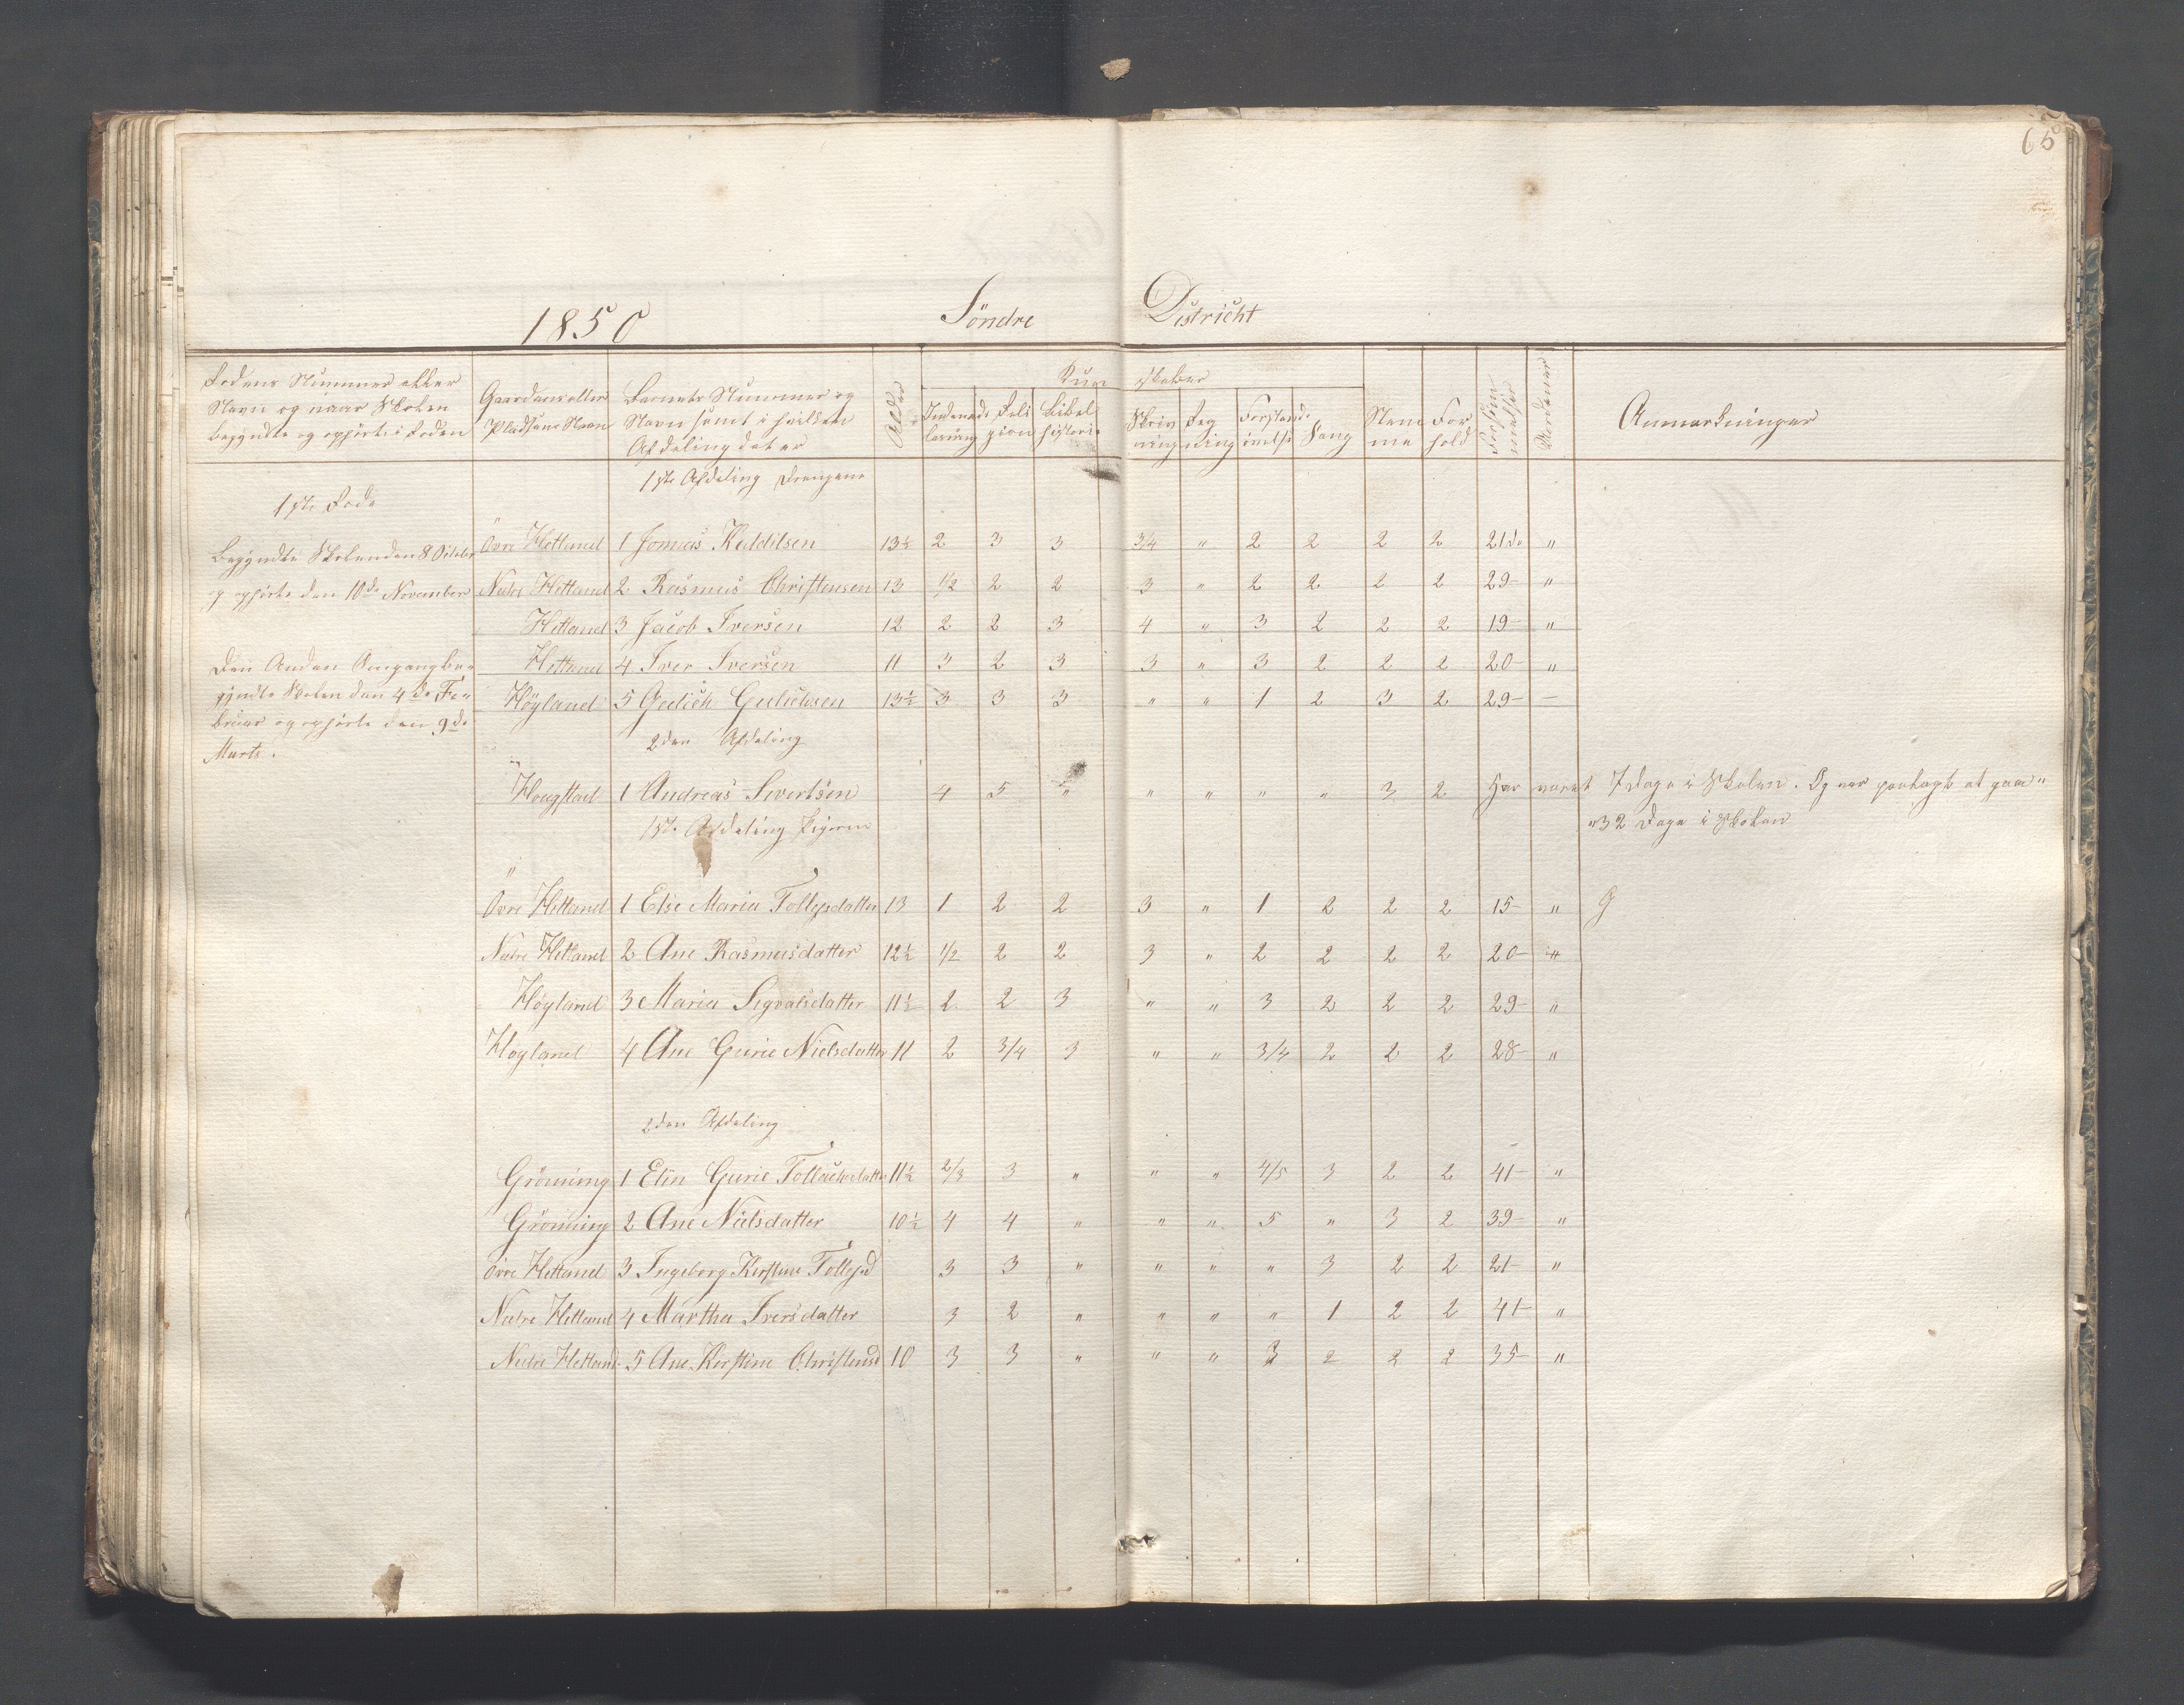 65
1850 Söndre Districht
Rodens Nummer eller
Navn og naar Skolen
begyndte og ophørte i Roden
Gaardens eller
Pladsens Navn
Barnets Nummer og
Navn samt i hvilken
Afdeling det er
Alder
Kun skaber
Indenads
læsning
Reli
gion
Bibel
historie
Skriv
ning
Reg
ning
Forstands
øvelse
Sang
Nem
me
For
hold
Forsøm
melser
Anmærkninger
1ste Afdeling Drengene
1ste Rode
Begyndte Skolen den 8 October
og ophørte den 10de November
Den Anden Omgang be-
gyndte Skolen den 4de Fe-
bruar og ophørte den 9de
Marts.
Övre Hetland 1 Jonas Kaddilsen 13½ 2 3 3 3/4 " 2 2 2 2 21de "
Nedre Hetland 2 Rasmus Christensen 13 1/2 2 2 3 " 2 2 2 2 29- "
Hetland 3 Jacob Iversen 12 2 2 3 4 " 3 2 2 2 19- "
Hetland 4 Iver Iversen 11 3 2 3 3 " 3 2 2 2 20- "
Höyland 5 Gulich Gulichsen 13½ 3 3 3 " " 1 2 3 2 29- -
2den Afdeling
Hougstad 1 Andreas Sivertsen 4 5 " " " " " 3 2 Har været 7 Dage i Skolen. Og var paalagt at gaa "
"32 Dage i Skolen
1ste Afdeling Pigerne
Övre Hetland 1 Else Maria Tollejsdatter 13 1 2 2 3 " 1 2 2 2 15- "
Nedre Hetland 2 Ane Rasmusdatter 12½ 1/2 2 2 3 " 2 2 2 2 20- "
Höyland 3 Maria Sigvalsdatter 11½ 2 2 3 " " 3 2 2 2 29- "
Höyland 4 Ane Gurie Nielsdatter 11 2 3/4 3 " " 3/4 2 2 2 28- "
2den Afdeling
Gröning 1 Elin Gurie Tollachsdatter 11½ 2/3 3 " " " 4/5 3 2 2 41- "
Gröning 2 Ane Nielsdatter 10½ 4 4 " " " 5 " 3 2 39- "
Övre Hetland 3 Ingeborg Kirstine Tollejsd 3 3 " " " " 3 2 2 21- "
Nedre Hetland 4 Martha Iversdatter 3 2 " " " " 1 2 2 41- "
Nedre Hetland 5 Ane Kirstine Christensd 10 3 3 " " " 3 2 2 2 35- "